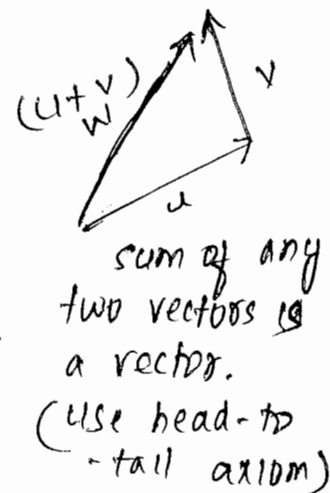 (u+v)
w
v
u
sum of any
two vectors is
a vector.
(use head-to
-tail axiom)